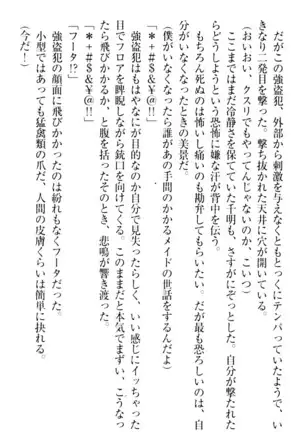 だがこの強盗犯、外部から刺激を与えなくともとっくにテンパっていたようで、い
きなり二発目を撃った。撃ち抜かれた天井に穴が開いている。
（おいおい、クスリでもやってんじゃないのか、こいつ）
ここまではまだ冷静さを保てていた千明も、さすがにぞっとした。自分が撃たれた
らどうしようという恐怖に嫌な汗が背中を伝う。
もちろん死ぬのは怖いし痛いのも勘弁してもらいたい。だが最も恐ろしいのは、自
分がいなくなったときの美景だ。
（僕がいなくなったら誰があの手間のかかるメイドの世話をするんだよ）
「＊＋＃＄＆￥＠‼」
強盗犯はもはやなにが目的なのか自分で見失ったらしく、いい感じにイッちゃった
目でフロアを睥睨しながら銃口を向けてくる。このままだと本気でまずい、こうなっ
たら飛びかかるか、と腹を括ったそのとき、悲鳴が響き渡った。
「＊＋＃＄＆￥＠‼」
「フータ⁉」
強盗犯の顔面に飛びかかったのは紛れもなくフータだった。
小型ではあっても猛禽類の爪だ、人間の皮膚くらいは簡単に抉れる。
（今だ！）